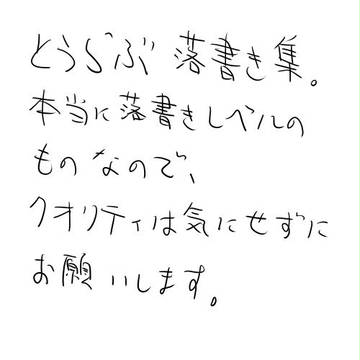 とうらぶ 落書き集。
本当に落書きレベルの
ものなので、
クオリティは気にせずに
お願いします。